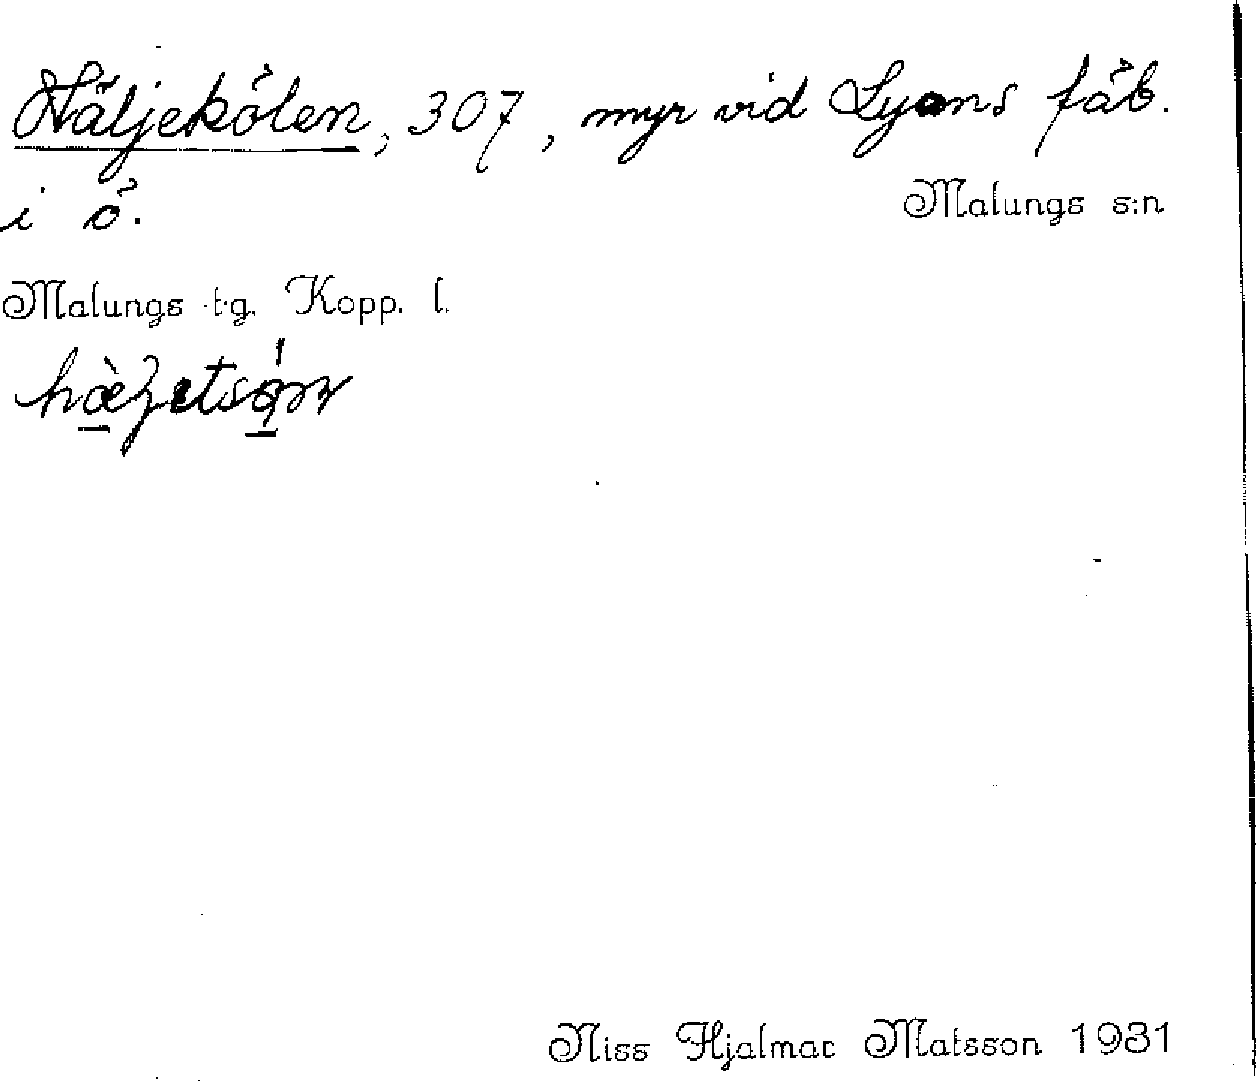 Häljekölen, 307, myr vid Lyons fäb.
i ö.
Malungs s:n
Malungs t·g. Kopp. l.
Niss Hjalmar Matsson 1931